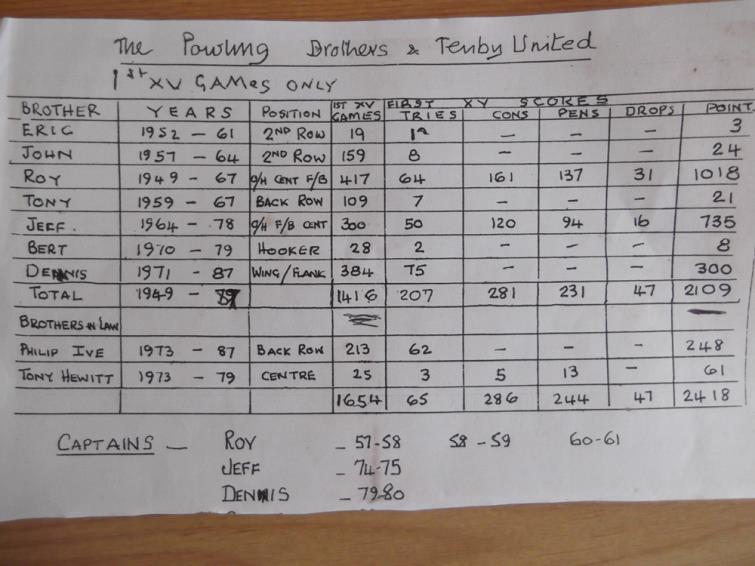 The Powling Brothers & Tenby United
1st XV GAMES ONLY
BROTHER YEARS POSITION 1ST XV GAMES FIRST XV SCORES TRIES CONS PENS DROPS POINT
ERIC 1952 - 61 2ND ROW 19 1 — — — 3
JOHN 1957 - 64 2ND ROW 159 8 — — — 24
ROY 1949 - 67 O/H CENT F/B 417 64 161 137 31 1018
TONY 1959 - 67 BACK ROW 109 7 — — — 21
JEFF. 1964 - 78 O/H F/B CENT 300 50 120 94 16 735
BERT 1970 - 79 HOOKER 28 2 — — — 8
DENNIS 1971 - 87 WING/FLANK 384 75 — — — 300
TOTAL 1949 - 1416 207 281 231 47 2109
BROTHERS IN LAW
PHILIP IVE 1973 - 87 BACK ROW 213 62 — — — 248
TONY HEWITT 1973 - 79 CENTRE 25 3 5 13 — 61
1654 65 286 244 47 2418
CAPTAINS — ROY - 57-58 58-59 60-61
JEFF - 74-75
DENNIS - 79-80